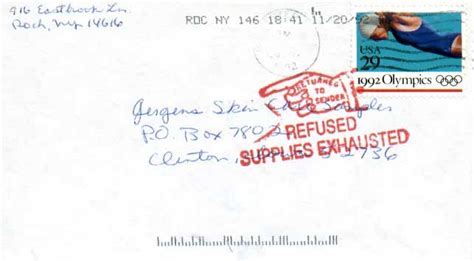 916 Eastbrook Ln.
Roch, NY 14616
ROC NY 146 18:41 11/20/92
USA
29
1992 Olympics
RETURNED
TO
SENDER
REFUSED
SUPPLIES EXHAUSTED
Jergens Skin Care Sampler
P.O. Box 780
Clinton, 52736